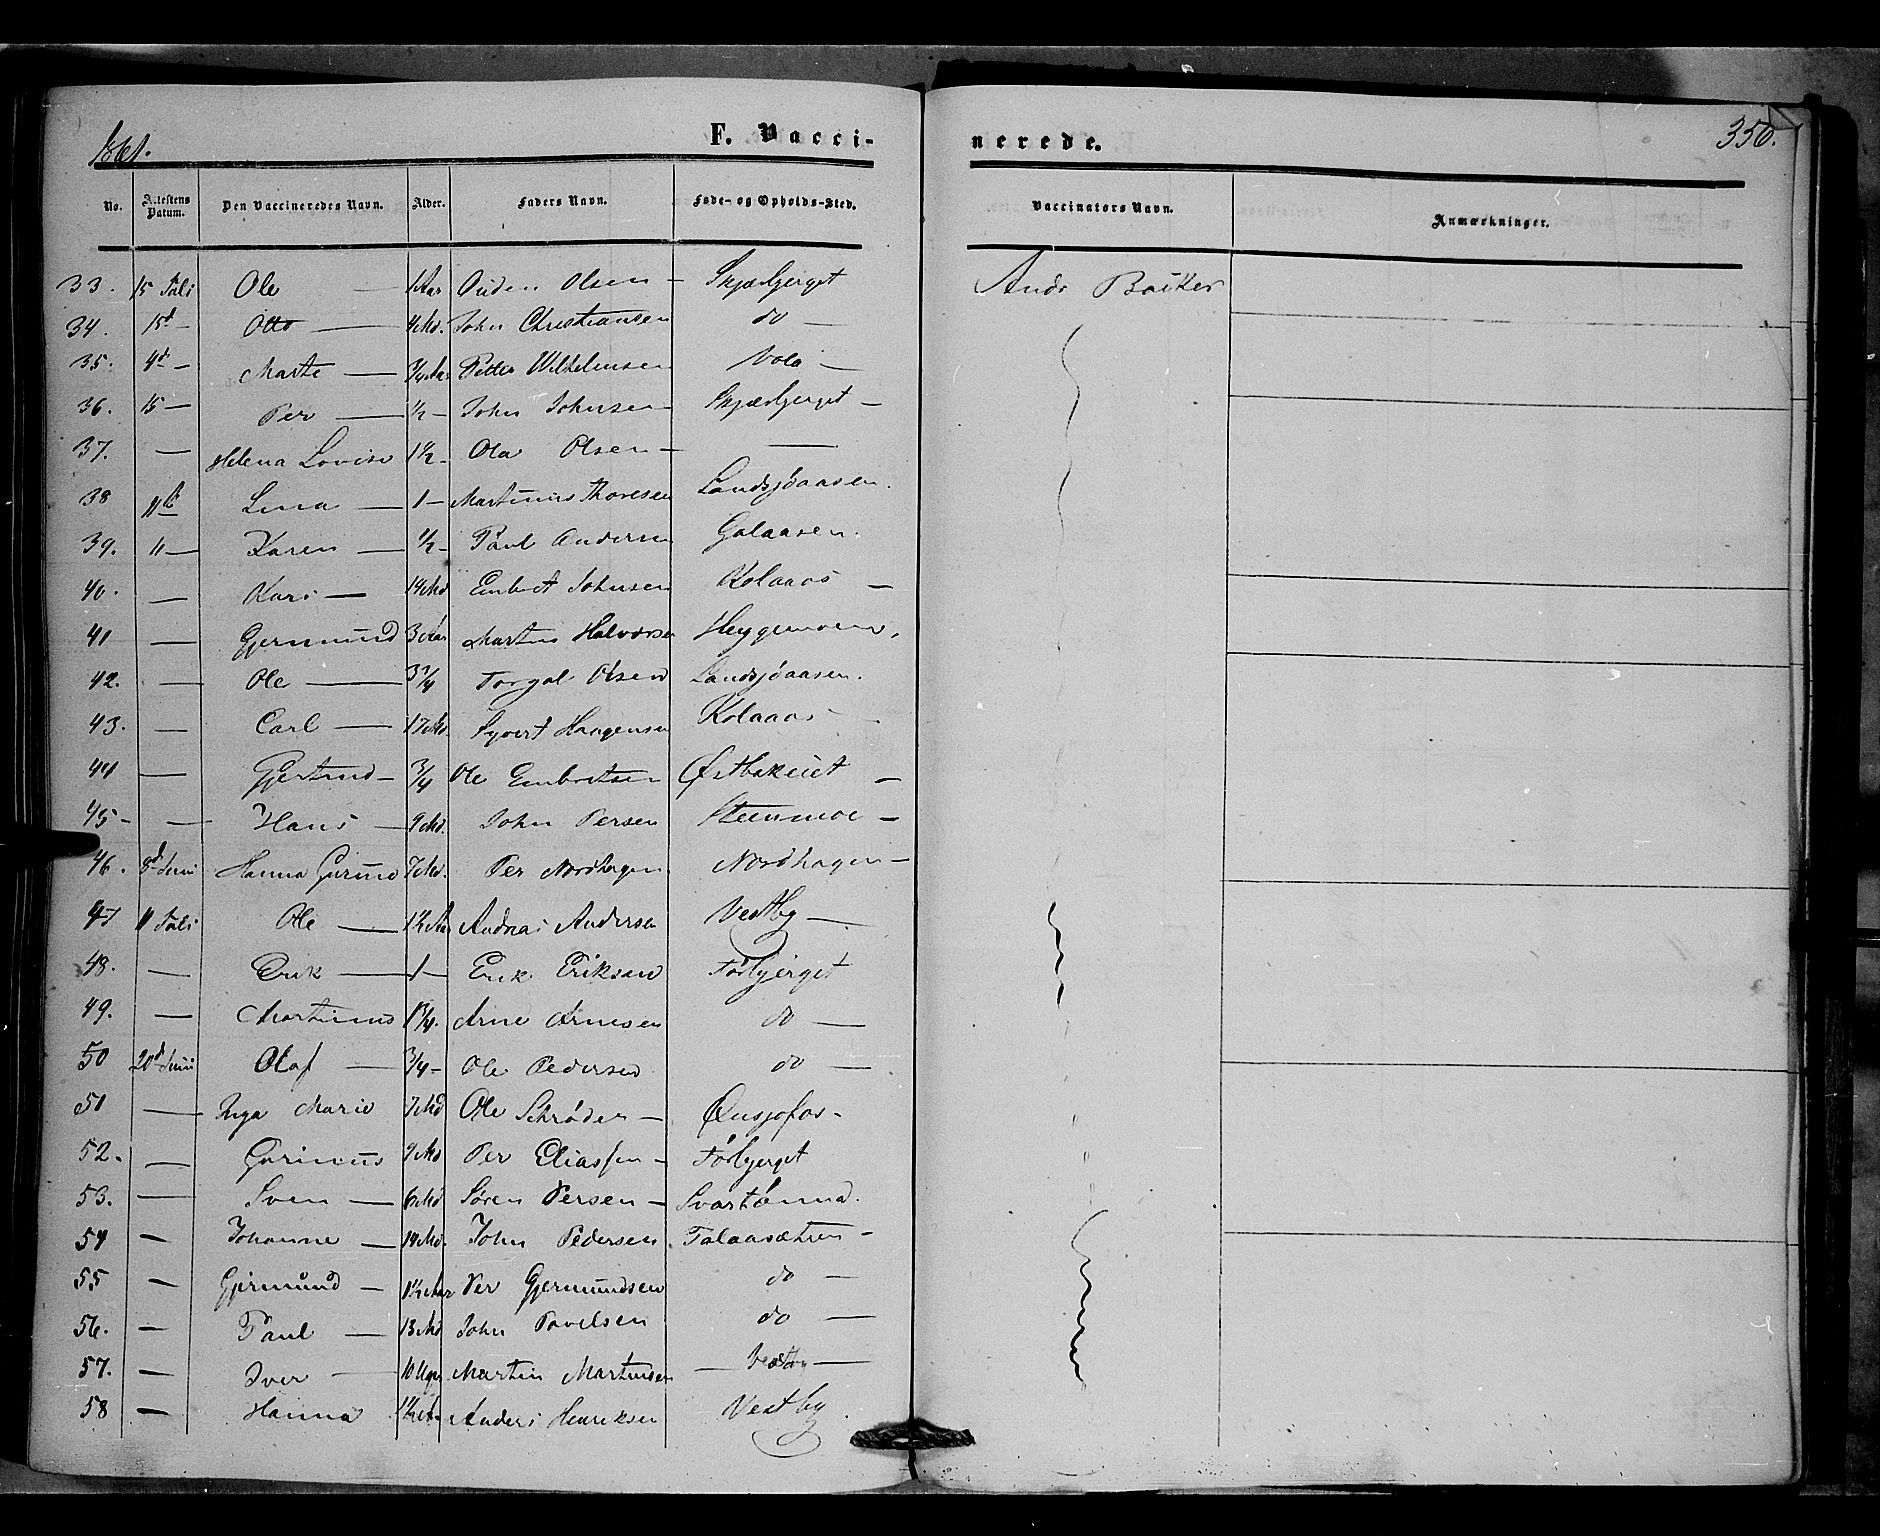 1861.
F. Vacci-
nerede.
350.
No. Attestens Datum. Den Vaccineredes Navn. Alder. Faders Navn. Føde- og Opholds-Sted. Vaccinators Navn. Anmærkninger.
33. 15 Juli Ole — 1 Aar Auden Olsen — Skjærbjerget Andr
34. 15d — Otto — 4 Md. John Christiansen do —
35. 4d — Marte — 3/4 Aar Petter Wilhelmsen —
36. 15 — Per — 1/2 — John Johnsen — Skjærbjerget —
37. — Helena Lovise 1 1/2 — Ola Olsen — —
38 11te Lina — 1 — Martinus Thoresen Landsjöaasen.
39. 11 — Karen — 1/2 — Paul Andersen Galaasen.
40. — Kari — 14 Md Embret Johnsen Kolaaos —
41 — Gjermund 3 Aar Martin Halvorsen Heggemoen.
42. — Ole — 3 3/4 Torgal Olsen Landsjöaasen.
43. — Carl — 17 Md. Syvert Haagensen Kolaaos —
44 — Gjertrud — 3/4 Ole Embretsen —
45 — — Hans — 9 Md. John Persen Steenmoe —
46. 8d Juni Hanna 7 Md. Per Nordhagen Nordhagen —
47 11 Juli Ole — 1 1/2 Aar Andreas Andersen Vestby —
48. — Erik — 1 — Erik Eriksen Förbjerget
49. — Martinus 1 3/4. Arne Arnesen do —
50 20d Juni Olaf — 3/4 — Ole Pedersen do —
51 — Inga Marie 7 Md Ole Schrøder —
52. — Gurinus 9 Md Per Eliassen — Förbjerget
53. — Sven — 6 Md Sören Persen —
54 — Johanne — 14 Md. John Pedersen. Falaasætren —
55 — Gjermund — 1 1/2 Aar Per Gjermundsen do —
56. — Paul — 13 Md John Povelsen do —
57. — Iver — 10 Uger Martin Martinsen — Vestby —
58 — Hanna 1 1/2 Aar Anders Henriksen Vestby.